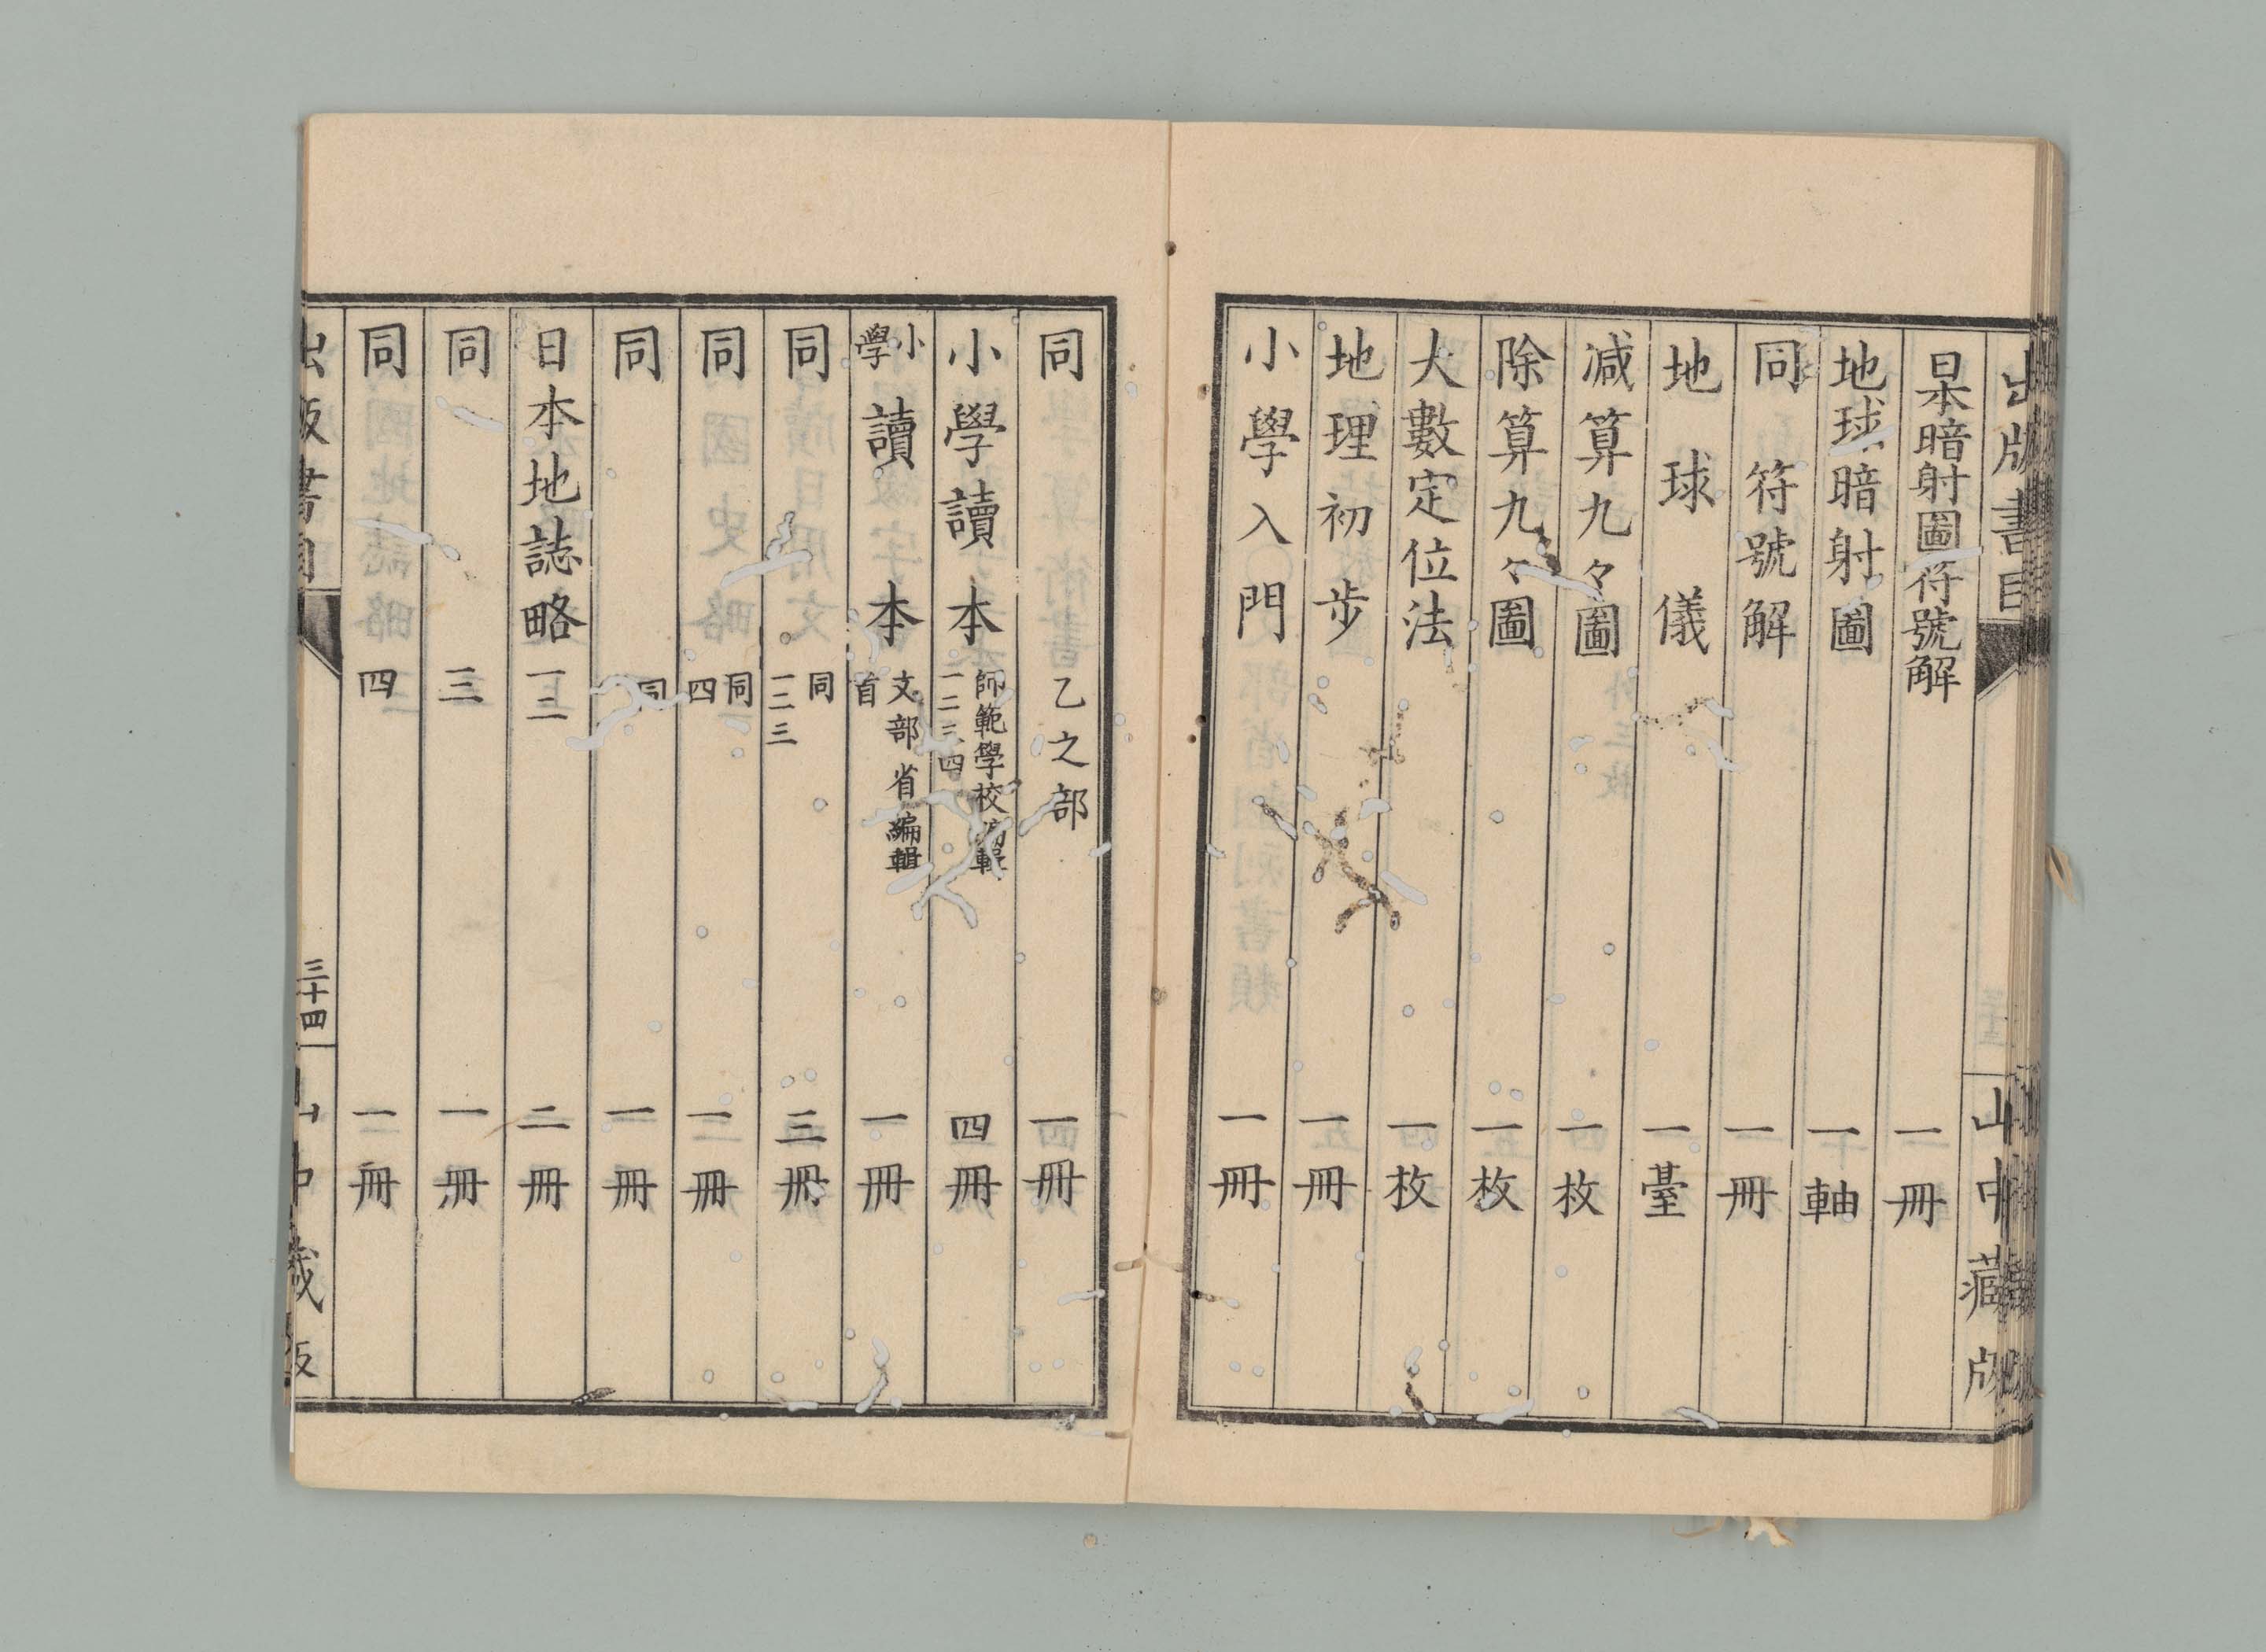 出版書目 山中藏版
日本暗射圖符號解 一冊
地球暗射圖 一軸
同符號解 一冊
地球儀 一臺
減算九々圖 一枚
除算九々圖 一枚
大數定位法 一枚
地理初步 一冊
小學入門 一冊
同 乙之部 一冊
小學讀本 師範學校編輯 一二三四 四冊
小學讀本 文部省編輯 首 一冊
同 同 一二三 三冊
同 同 四 一冊
同 同 一冊
日本地誌略 一二 二冊
同 三 一冊
同 四 一冊
出版書目 三十四 山中藏版